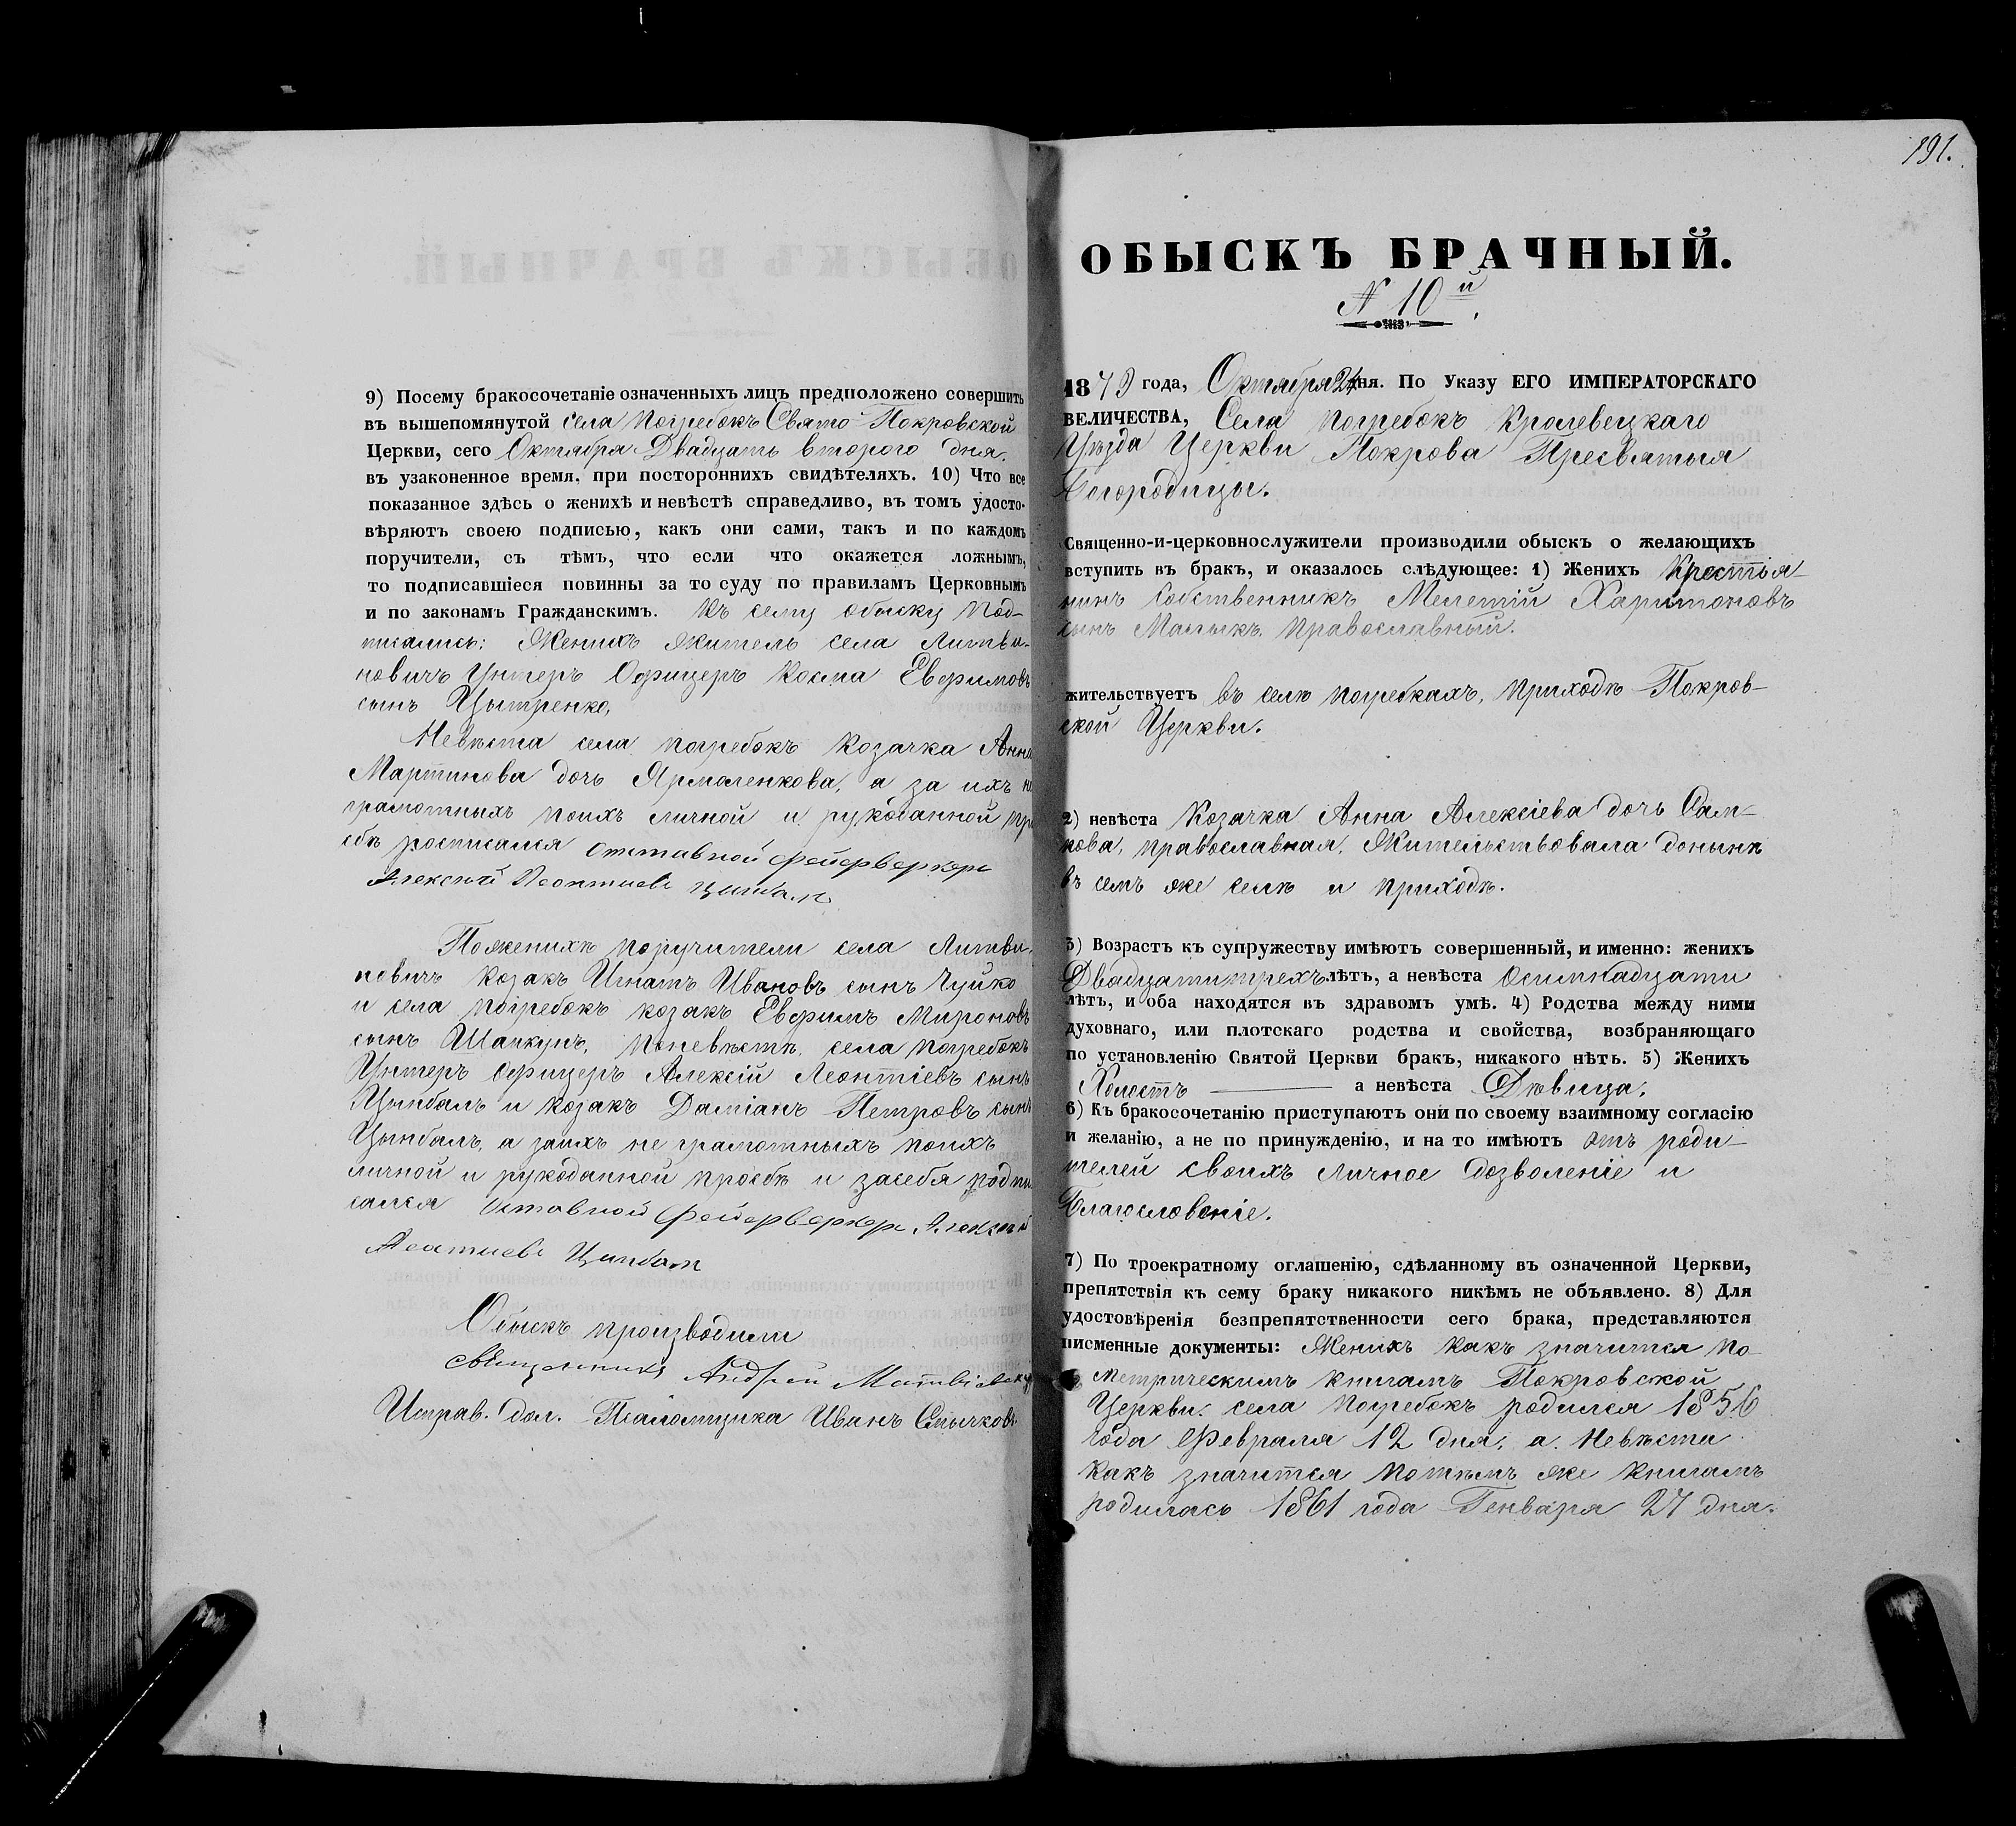 9) Посему бракосочетаніе означенныхъ лицъ предположено совершить
въ вышепомянутой села Погребокъ Свято-Покровской
Церкви, сего Октября Двадцать втораго дня.
въ узаконенное время, при постороннихъ свидѣтеляхъ. 10) Что все
показанное здѣсь о женихѣ и невѣстѣ справедливо, въ томъ удосто-
вѣряютъ своею подписью, какъ они сами, такъ и по каждомъ
поручители, съ тѣмъ, что если что окажется ложнымъ,
то подписавшіеся повинны за то суду по правиламъ Церковнымъ
и по законамъ Гражданскимъ. Къ сему обыску под-
писались: Женихъ житель села Литви-
новичъ Унтеръ Офицеръ Косма Евфимовъ
сынъ Цытренко,
Невѣста села Погребокъ козачка Анна
Мартинова дочь Ярмоленкова, а за ихъ не
грамотныхъ поихъ личной и рукоданной про
сбѣ росписался отставной фейерверкеръ
Алексей Леонтиевъ Цинбал
Поженихѣ поручители села Литви-
новичъ козакъ Игнатъ Ивановъ сынъ Чуйко
и села Погребокъ козакъ Евфимъ Мироновъ
сынъ Шапкунъ, поневѣстѣ, села Погребокъ
Унтеръ Офицеръ Алексій Леонтіевъ сынъ
Цынбалъ и козакъ Даміанъ Петровъ сынъ
Цынбалъ, а заихъ не грамотныхъ поихъ
личной и рукоданной прозбѣ и засебя подпи
сался отставной фейерверкеръ Алексей
Леонтиевъ Цинбал
Обыскъ производили
священникъ Андрей
Исправ. дол. Псаломщика Иванъ Смычковъ

191.
ОБЫСКЪ БРАЧНЫЙ.
N 10й
1879 года, Октября дня. По Указу ЕГО ИМПЕРАТОРСКАГО
ВЕЛИЧЕСТВА, Села Погребокъ Кролевецкаго
Уѣзда Церкви Покрова Пресвятыя
Богородицы.
Священно-и-церковнослужители производили обыскъ о желающихъ
вступить въ бракъ, и оказалось слѣдующее: 1) Женихъ Крестья-
нинъ Собственникъ Мелетій Харитоновъ
сынъ православный.
жительствуетъ въ селѣ Погребкахъ, приходѣ Покров-
ской Церкви.
2) невѣста Козачка Анна Алексіева дочь Сам-
кова, православная, Жительствовала донынѣ
въ семъ же селѣ и приходѣ.
3) Возрастъ къ супружеству имѣютъ совершенный, и именно: женихъ
Двадцатитрехъ лѣтъ, а невѣста Осимнадцати
лѣтъ, и оба находятся въ здравомъ умѣ. 4) Родства между ними
духовнаго, или плотскаго родства и свойства, возбраняющаго
по установленію Святой Церкви бракъ, никакого нѣтъ. 5) Женихъ
Холостъ а невѣста Дѣвица.
6) Къ бракосочетанію приступаютъ они по своему взаимному согласію
и желанію, а не по принужденію, и на то имѣютъ отъ роди-
телей своихъ личное дозволеніе и
Благословеніе.
7) По троекратному оглашенію, сдѣланному въ означенной Церкви,
препятствія къ сему браку никакого никѣмъ не объявлено. 8) Для
удостовѣренія безпрепятственности сего брака, представляются
писменные документы: Женихъ какъ значится по
метрическимъ книгамъ Покровской
Церкви села Погребокъ родился 1856
года Февраля 12 дня, а невѣста
какъ значится потѣмъ же книгамъ
родилась 1861 года Генваря 27 дня.